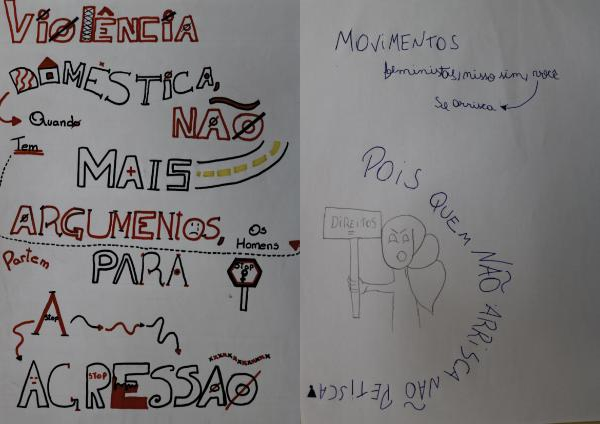 VIOLÊNCIA
DOMÉSTICA,
Quando NÃO
Tem MAIS
ARGUMENTOS,
Os Homens
Partem PARA
STOP
A
STOP
AGRESSÃO
STOP
MOVIMENTOS
feministas, nisso sim, você
Se arrisca
POIS QUEM NÃO ARRISCA NÃO PETISCA
DIREITOS
=